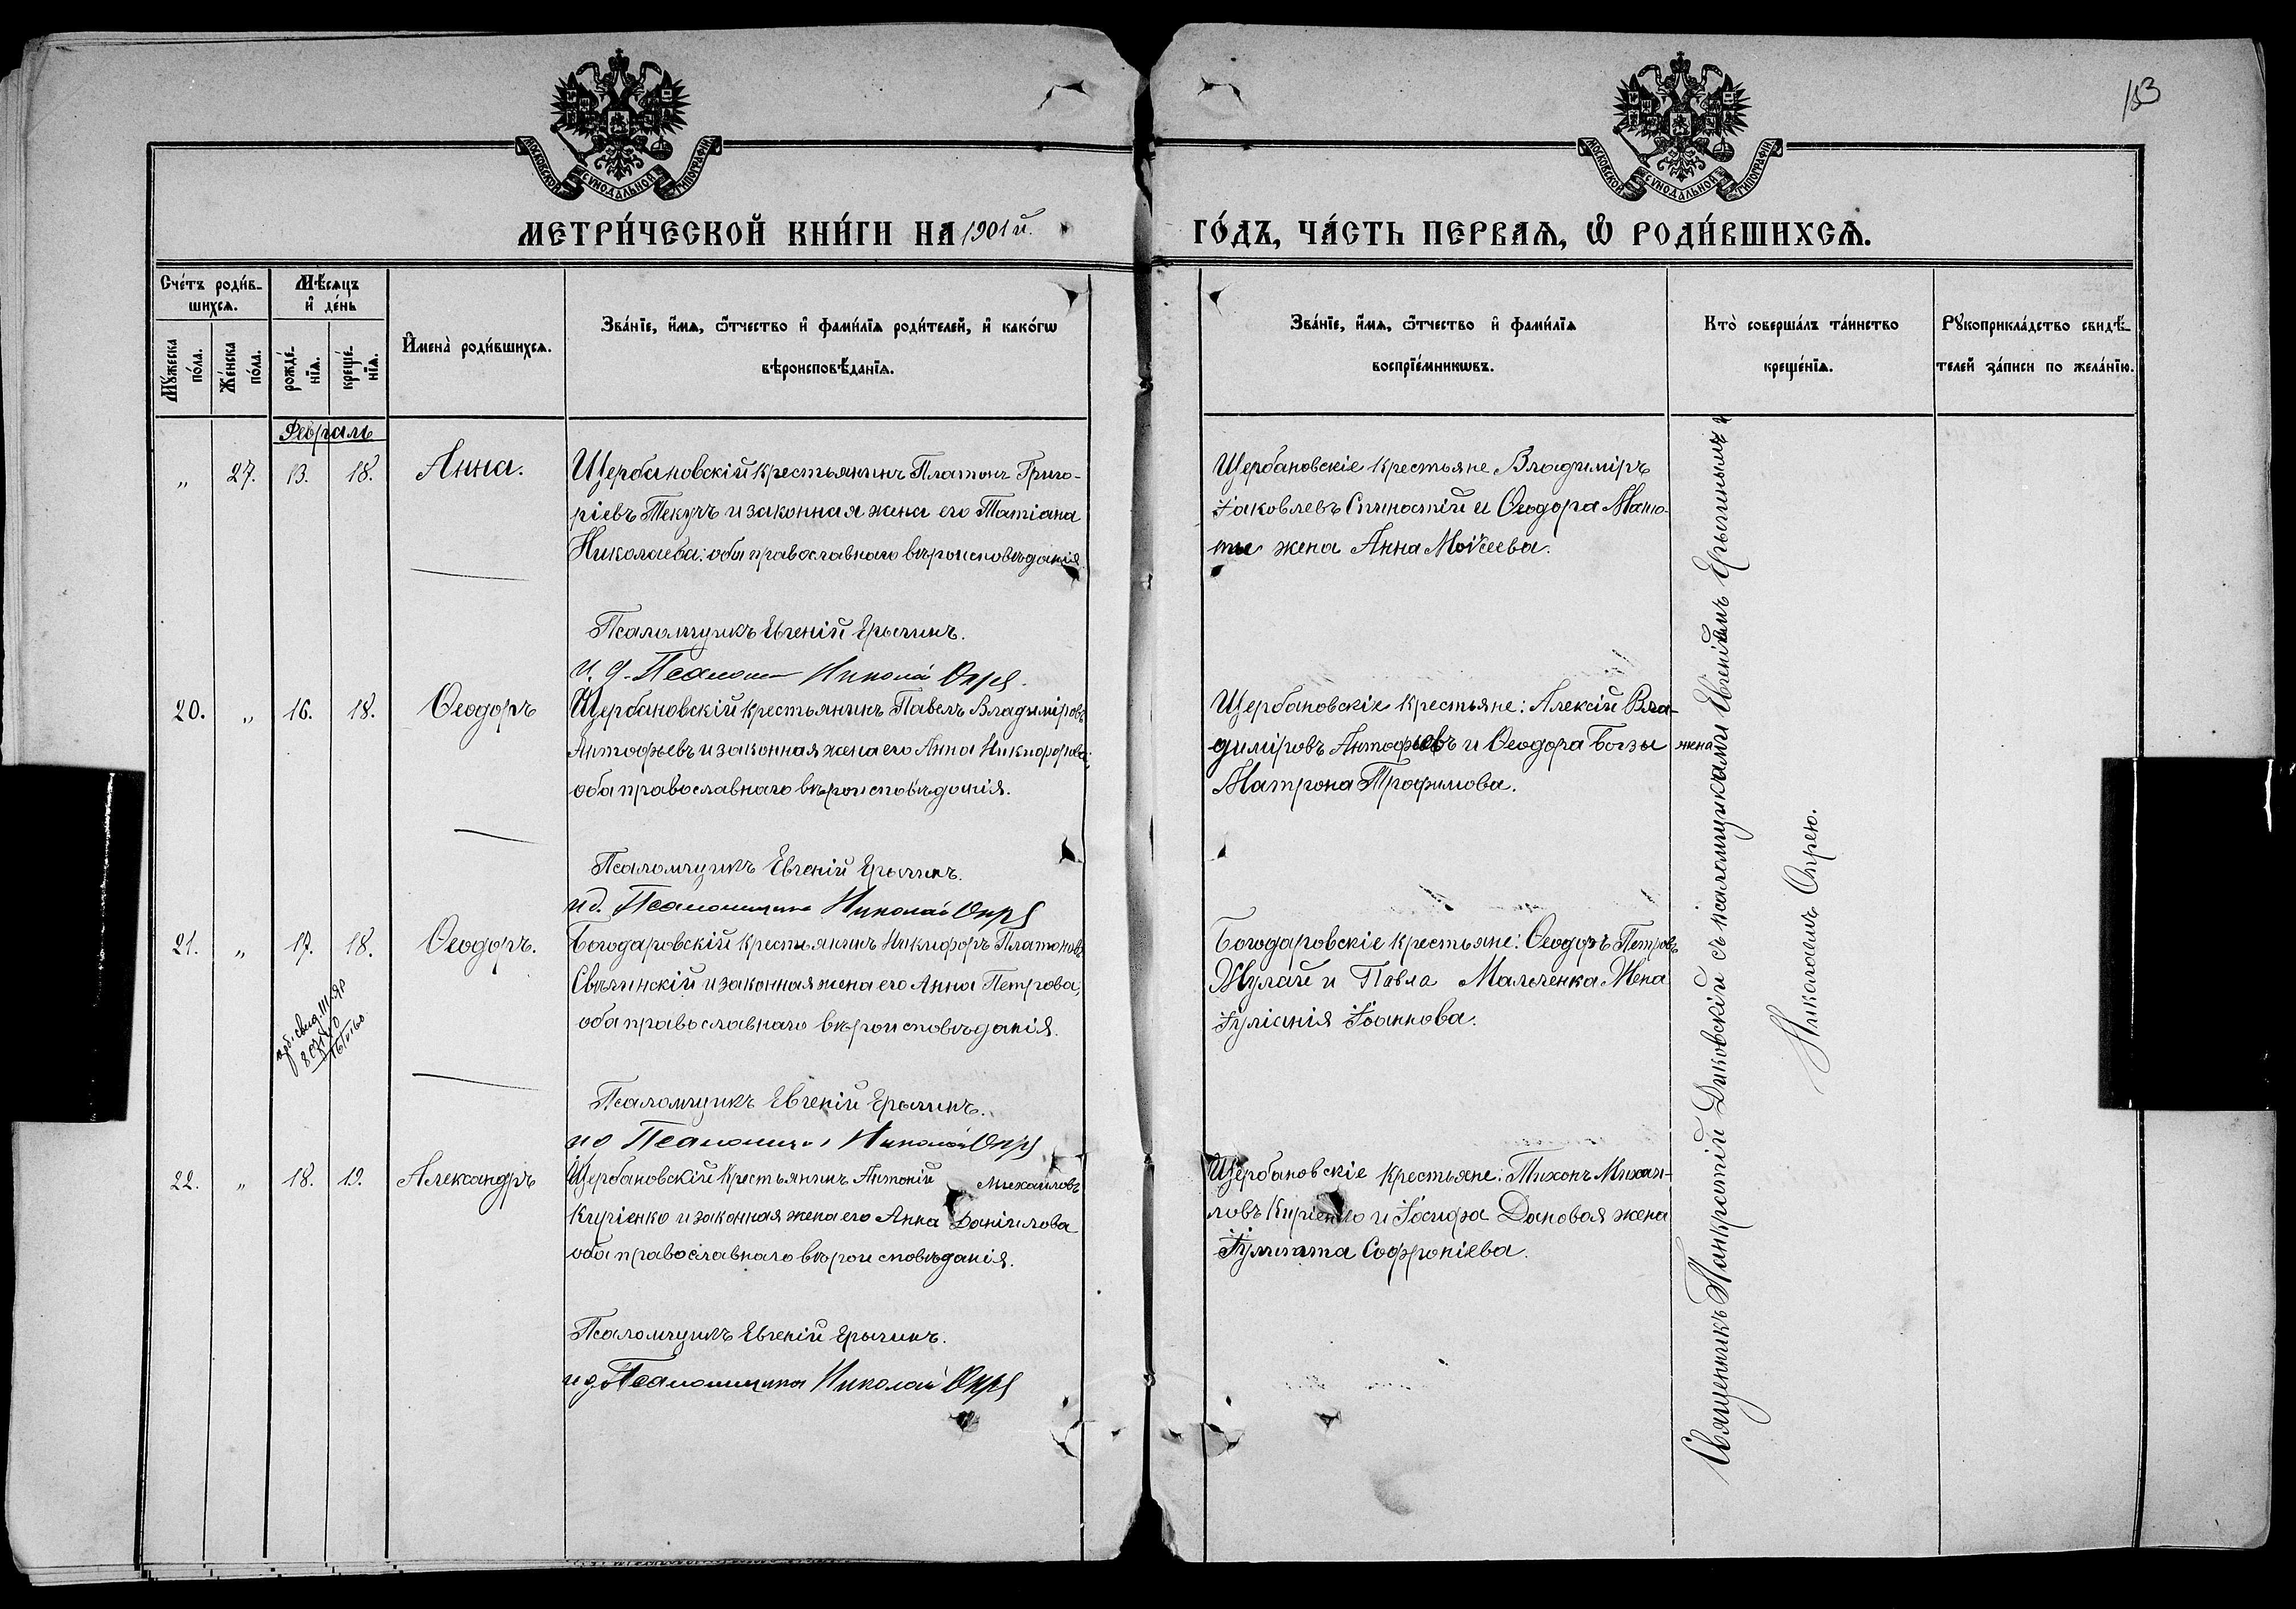 183
МОСКОВСКОЙ СУНОДАЛЬНОЙ ТИПОГРАФІИ
МОСКОВСКОЙ СУНОДАЛЬНОЙ ТИПОГРАФІИ
МЕТРИ́ЧЕСКОЙ КНИ́ГИ НА 1901й.
ГО́ДЪ, ЧА́СТЬ ПЕРВАѦ, Ѡ҆ РОДИ́ВШИХСѦ.
Сче́тъ роди́в-
шихсѧ.
Мꙋ́жеска
по́ла.
Же́нска
по́ла.
Мѣ́сѧцъ
и҆ де́нь
рожде́-
нїѧ.
креще́-
нїѧ.
И҆мена̀ роди́вшихсѧ.
Зва́нїе, и҆́мѧ, ѻ҆́тчество и҆ фами́лїѧ роди́телей, и҆ како́гѡ
вѣроисповѣ́данїѧ.
Зва́нїе, и҆́мѧ, ѻ҆́тчество и҆ фами́лїѧ
воспрїе́мникѡвъ.
Кто̀ соверша́лъ та́инство
креще́нїѧ.
Рꙋкоприкла́дство свидѣ́-
телей за́писи по жела́нїю.
Февраль
„ 27. 13. 18. Анна.
Щербановскій крестьянинъ Платонъ Григо-
ріевъ Текучъ и законная жена его Татіана
Николаева: оба православнаго вѣроисповѣданія
Псаломщикъ Евгеній Ерыгинъ.
И. д. Псаломщ Николай Опря.
Щербановскіе крестьяне Владиміръ
Іаковлевъ и Ѳеодора
жена Анна Моѵсеева.
20. „ 16. 18. Ѳеодоръ
Щербановскій крестьянинъ Павелъ Владиміровъ
Антофьевъ и законная жена его Анна Никифорова;
оба православнаго вѣроисповѣданія.
Псаломщикъ Евгеній Ерыгинъ.
и д. Псаломщика Николай Опря
Щербановскіе крестьяне: Алексій Вла-
диміровъ Антофьевъ и Ѳеодора Богзы жена
Матрона Трофимова.
21. „ 17. 18. Ѳеодоръ.
Богодаровскій крестьянинъ Никифоръ Платоновъ
Свѣчинскій и законная жена его Анна Петрова,
оба православнаго вѣроисповѣданія.
Псаломщикъ Евгеній Ерыгинъ.
и д Псаломщика Николай Опря
Богодаровскіе крестьяне: Ѳеодоръ Петровъ
Жулай и Павла Мальченка жена
Іуліанія Іоаннова.
22. „ 18. 19. Александръ
Щербановскій крестьянинъ Антоній Михаиловъ
Киріенко и законная жена его Анна Даніилова
оба православнаго вѣроисповѣданія.
Псаломщикъ Евгеній Ерыгинъ.
и д. Псаломщика Николай Опря
Щербановскіе крестьяне: Тихонъ Михаи-
ловъ Киріенко и Іосифа Дановая жена
Іулитта Софроніева.
Священникъ Панкратій Диковскій съ псаломщиками Евгеніемъ Ерыгинымъ и
Николаемъ Опрею.